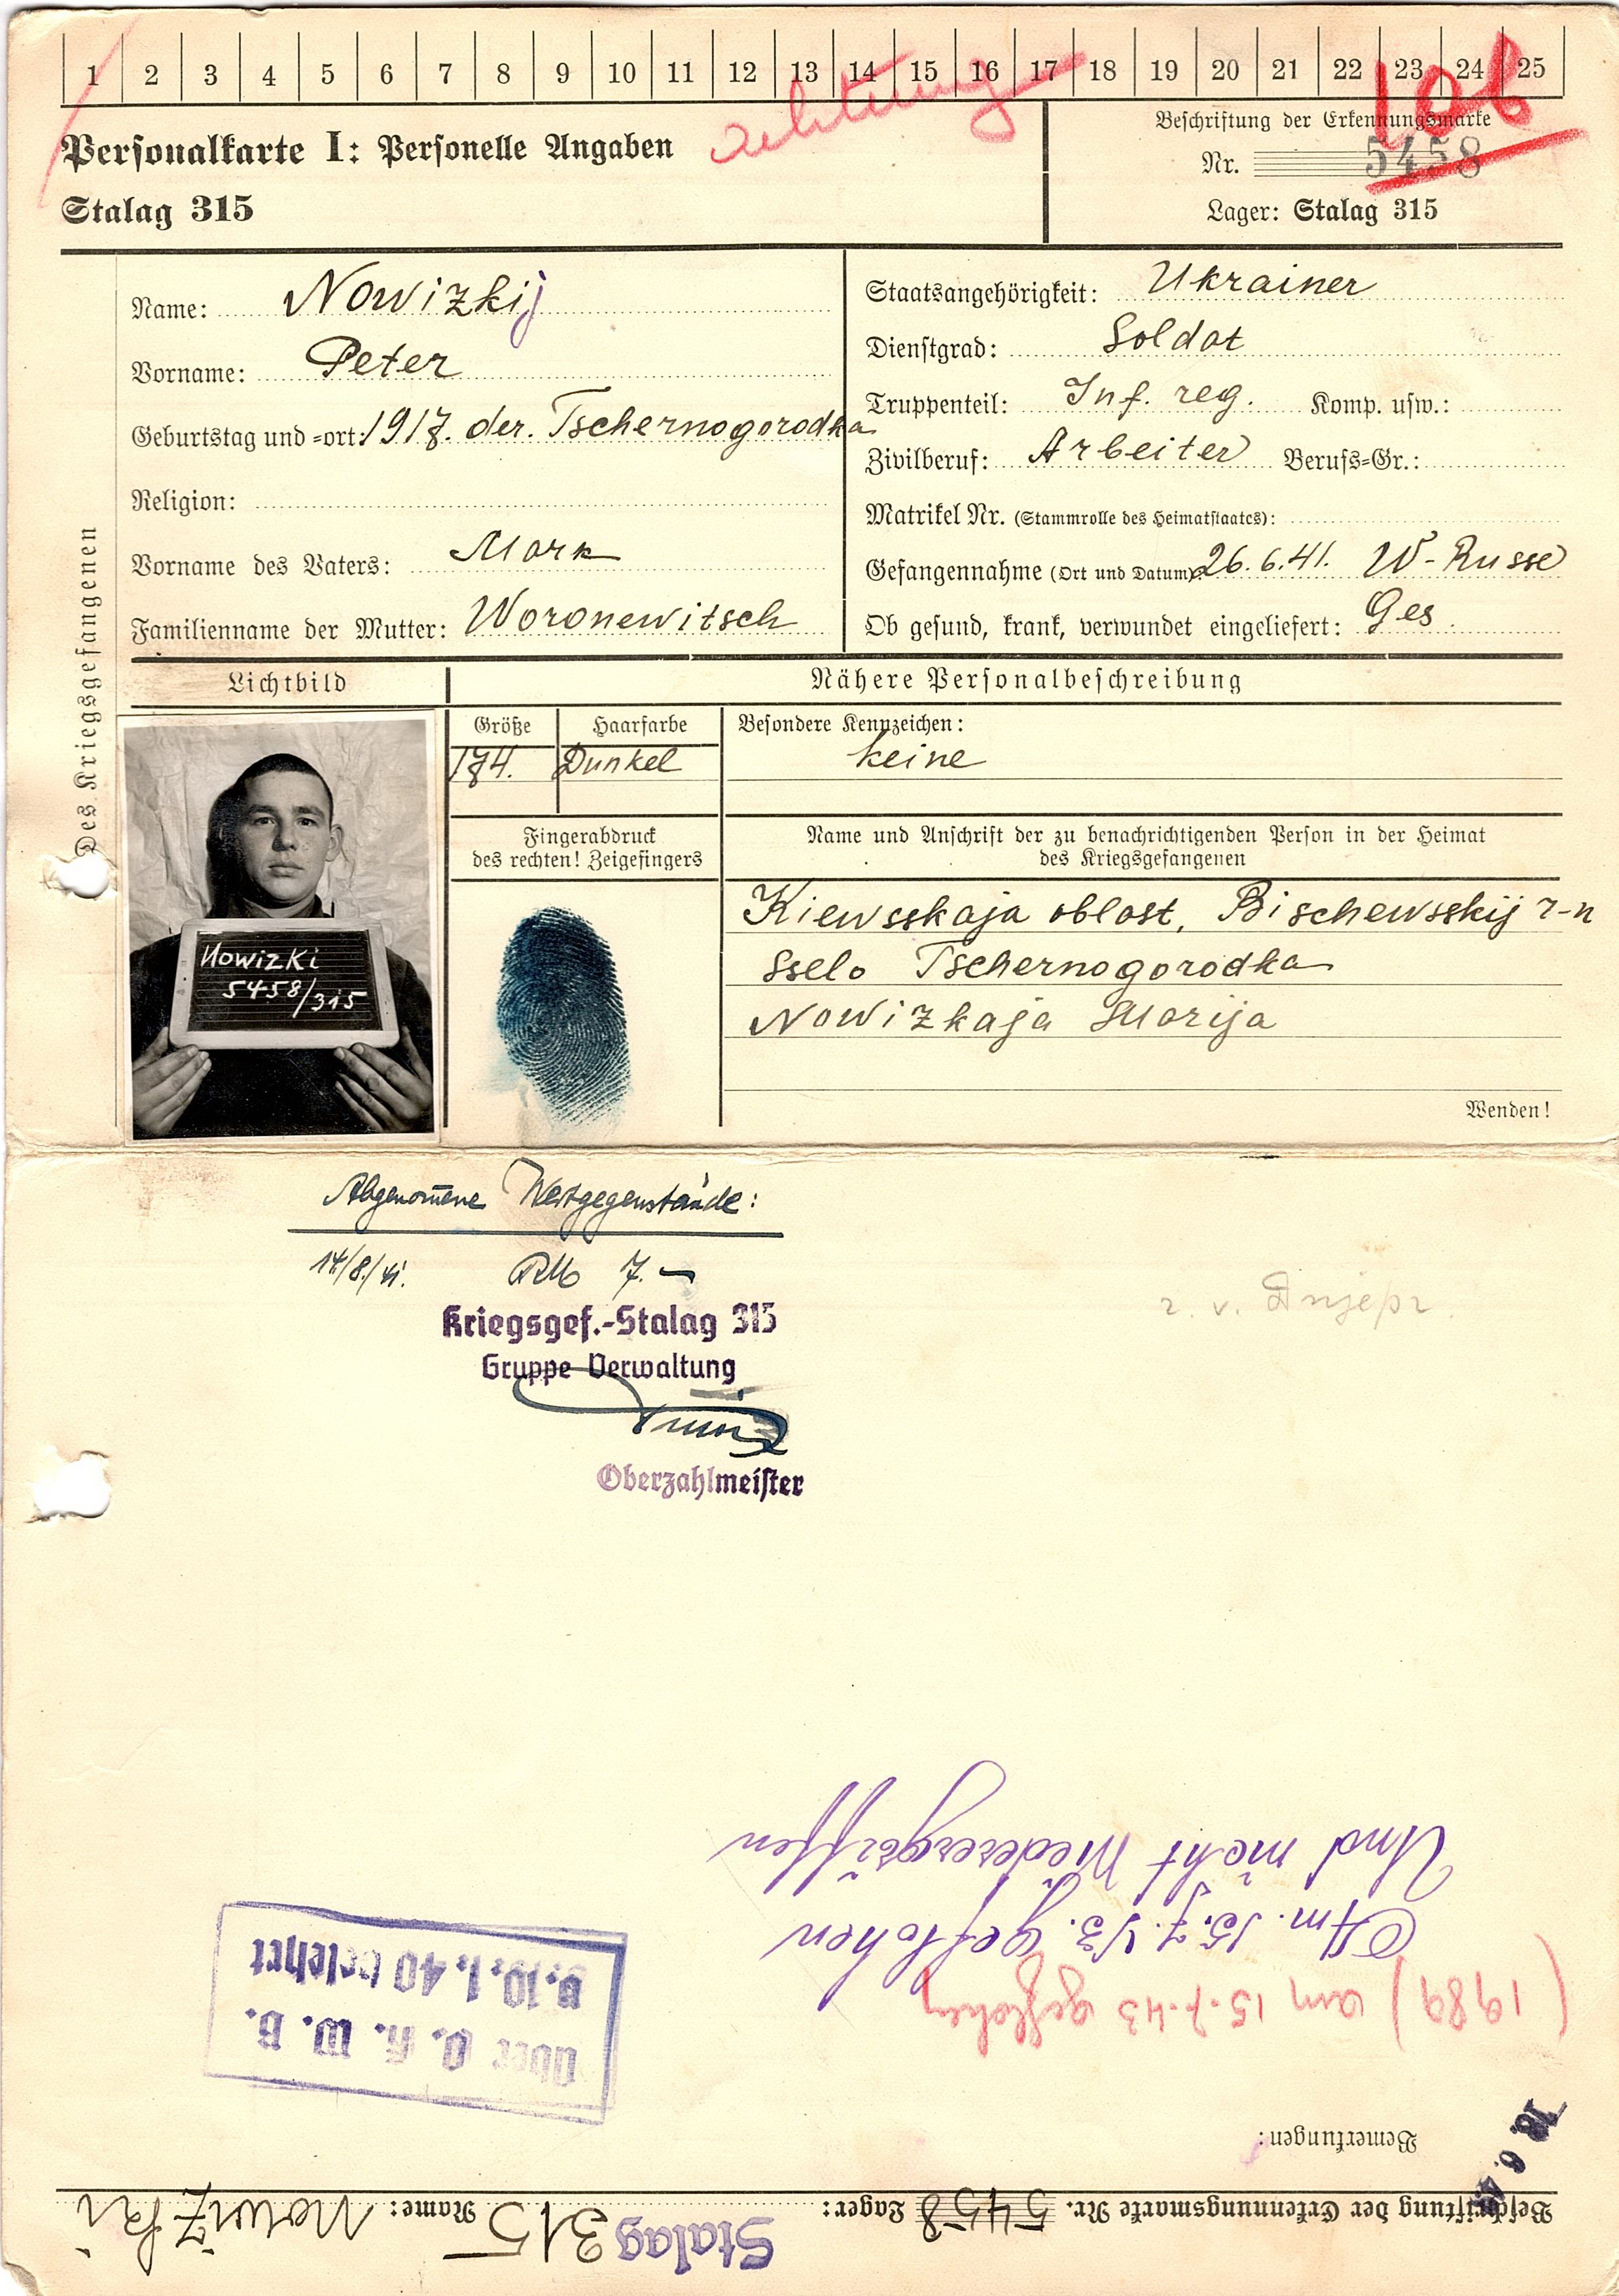 1 2 3 4 5 6 7 8 9 10 11 12 13 14 15 16 17 18 19 20 21 22 23 24 25
Achtung
106
Personalkarte I: Personelle Angaben
Stalag 315
Beschriftung der Erkennungsmarke
Nr. 5458
Lager: Stalag 315
Des Kriegsgefangenen
Name: Nowizkij
Vorname: Peter
Geburtstag und =ort: 1917. der. Tschernogorodka
Religion:
Vorname des Vaters: Mark
Familienname der Mutter: Woronewitsch
Staatsangehörigkeit: Ukrainer
Dienstgrad: Soldat
Truppenteil: Inf. reg. Komp. usw.:
Zivilberuf: Arbeiter Berufs=Gr.:
Matrikel Nr. (Stammrolle des Heimatstaates):
Gefangennahme (Ort und Datum): 26.6.41. W-Russe
Ob gesund, krank, verwundet eingeliefert: Ges.
Lichtbild
Nähere Personalbeschreibung
Größe Haarfarbe
174. Dunkel
Besondere Kennzeichen:
keine
Nowizki
5458/315
Fingerabdruck
des rechten! Zeigefingers
Name und Anschrift der zu benachrichtigenden Person in der Heimat
des Kriegsgefangenen
Kiewsskaja oblast, Bischewsskij r-n
Sselo Tschernogorodka
Nowizkaja Marija
Wenden!
Abgenom̄ene Wertgegenstände:
14/8./41. RM 7.—
Kriegsgef.-Stalag 315
Gruppe Verwaltung
Oberzahlmeister
r. v. Dnjepr.
Beschriftung der Erkennungsmarke Nr. 5458 Lager: Stalag 315 Name: Nowizki
Bemerkungen:
18. 6.
(1989) am 15.7.43 geflohen
Am. 15.7.43. geflohen
Und nicht Wiederergriffen
Über O. K. W. B.
v. 10. 1. 40 belehrt